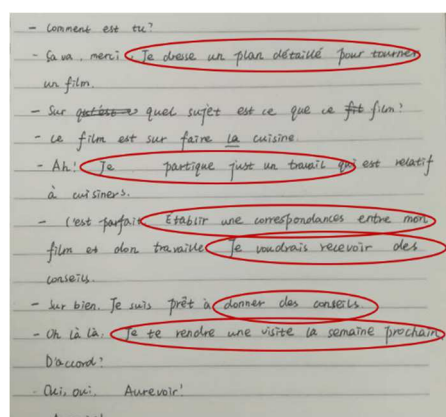 - Comment est tu?
- Ça va, merci. Je dresse un plan détaillé pour tourner
un film.
- Sur quel sujet est ce que ce film?
- ce film est sur faire la cuisine.
- Ah! Je partique just un travail qui est relatif
à cuisiners.
- C'est parfait. Etablir une correspondances entre mon
film et don travaille. Je voudrais recevoir des
conseils.
- Sur bien. Je suis prêt à donner des conseils.
- Oh là là. Je te rendre une visite la semaine prochain
D'accord?
- Oui, oui. Aurevoir!